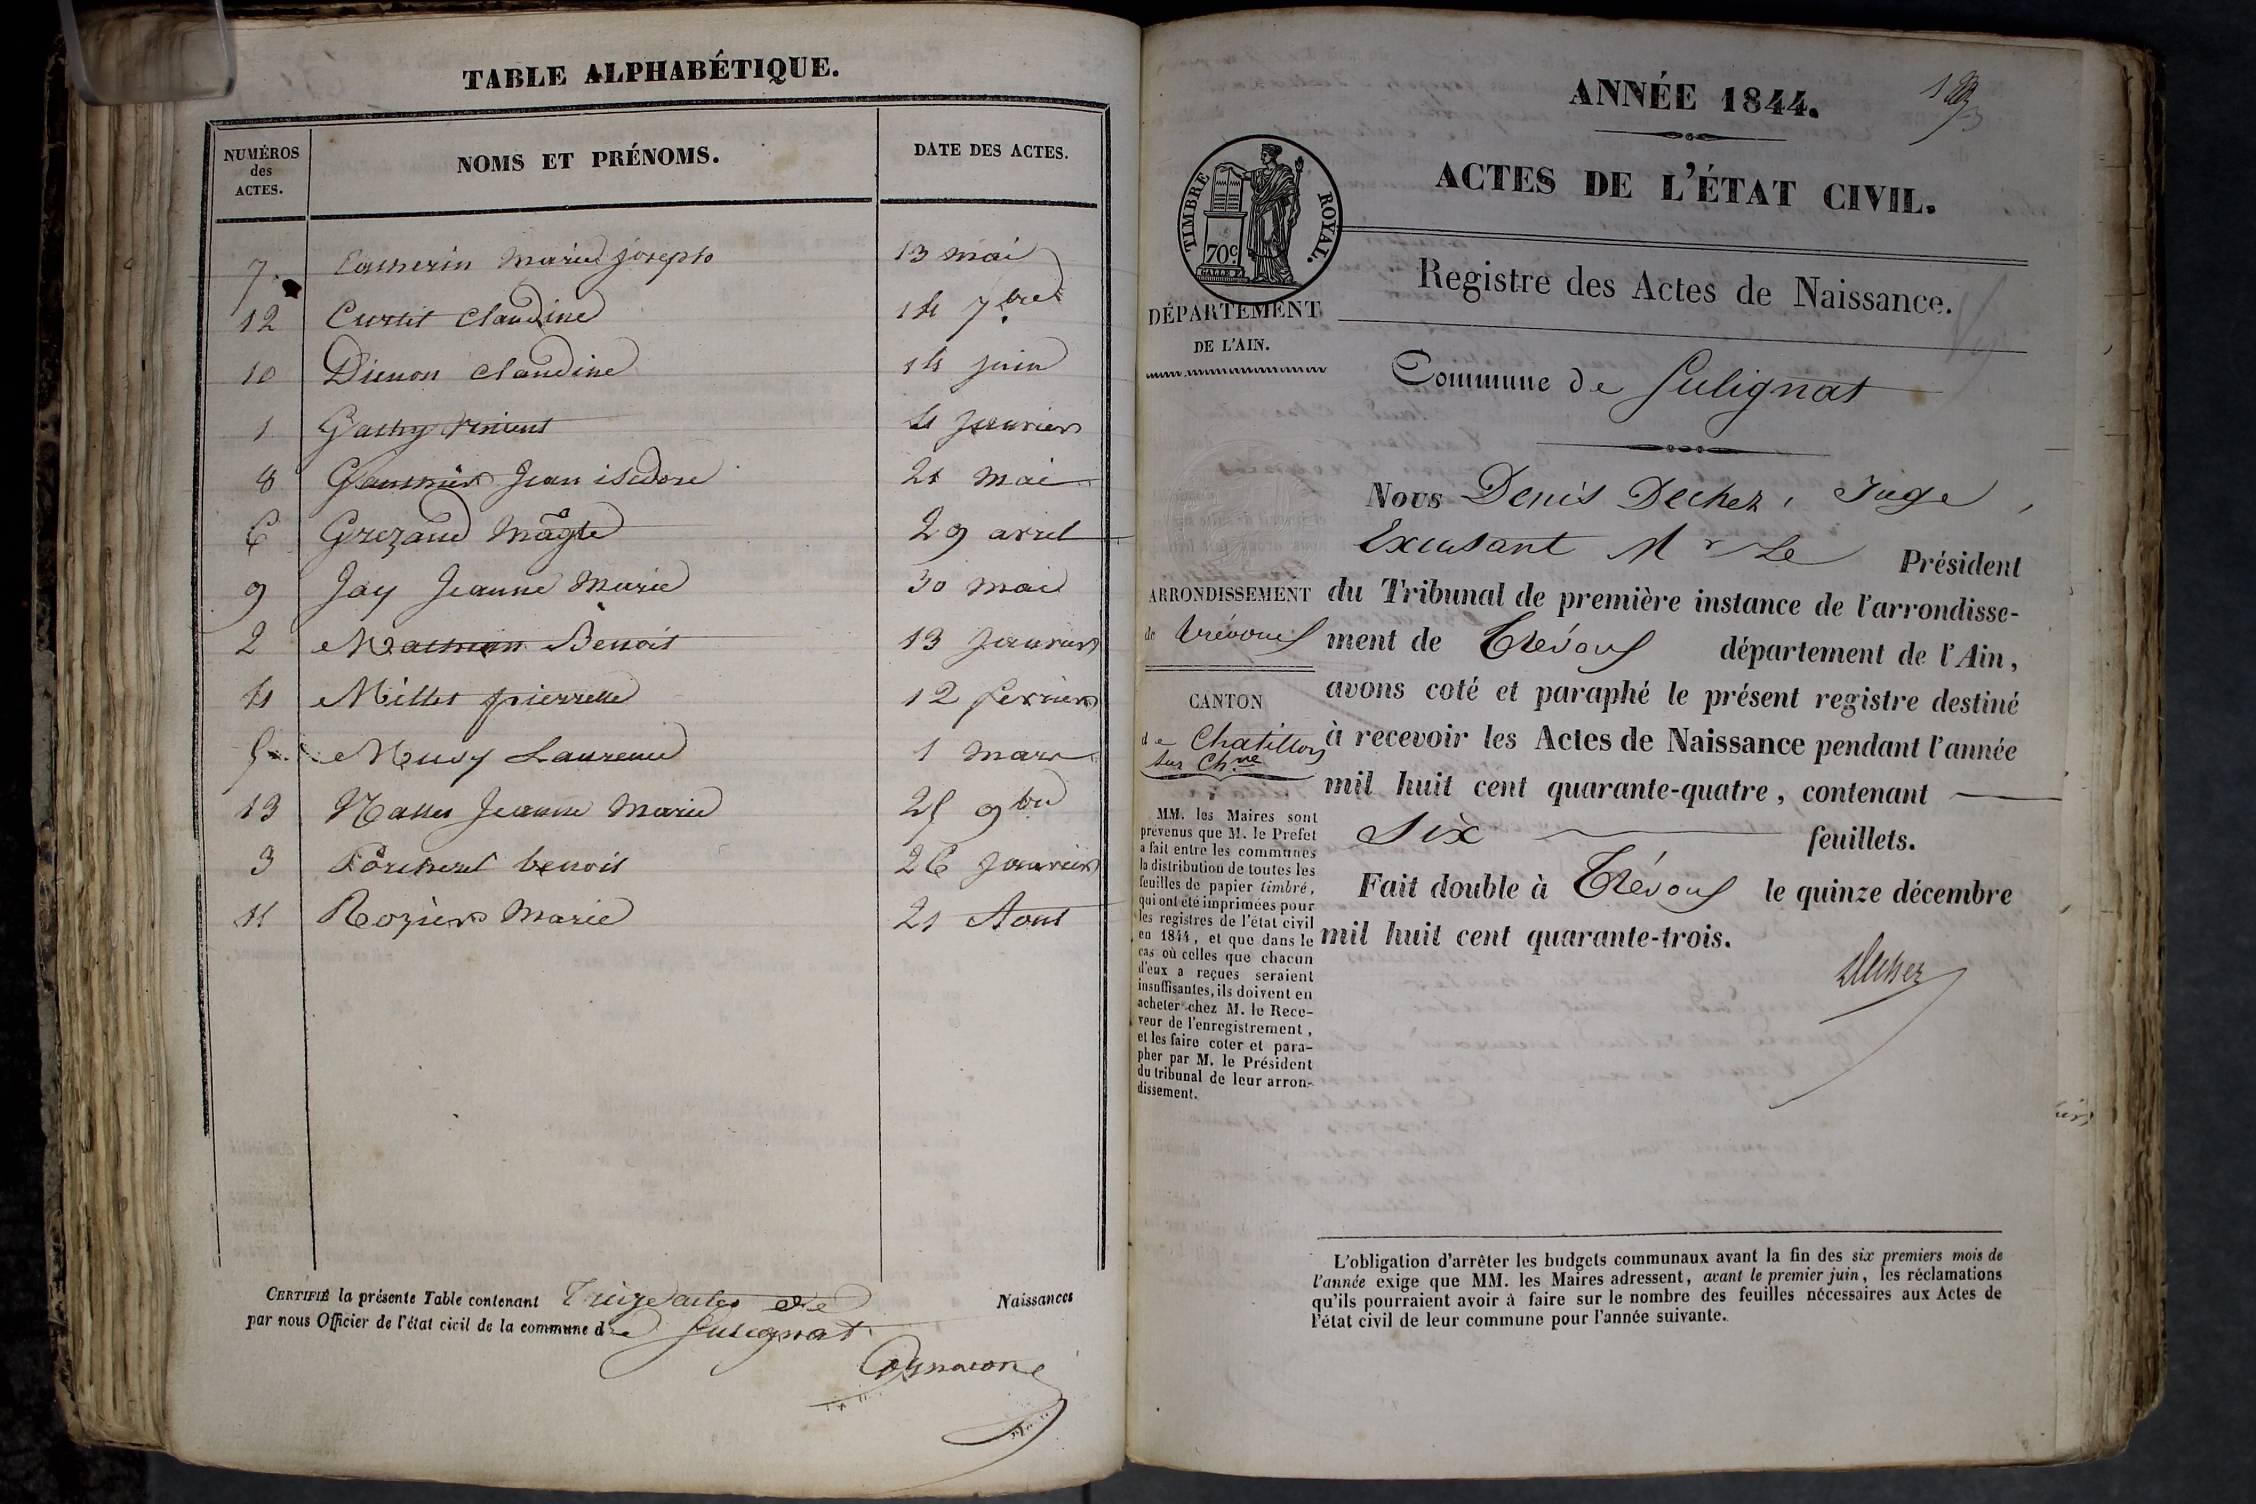 TABLE ALPHABÉTIQUE.
NUMÉROS
des
ACTES.
NOMS ET PRÉNOMS.
DATE DES ACTES.
7 Catherin Marie Josepte 13 mai
12 Curtit Claudine 14 7bre
10 Claudine 14 juin
1 4 Janvier
8 Jean isidore 21 Mai
6 Grezaud Magte 29 avril
9 Jay Jeanne Marie 30 mai
2 Benoit 13 Janvier
4 Millet pierrette 12 fevrier
5 Musy 1 Mars
13 Jeanne Marie 25 9bre
3 benoit 26 Janvier
11 Rozier Marie 21 Aout
CERTIFIÉ la présente Table contenant Treize actes de Naissances
par nous Officier de l'état civil de la commune de Sulignat
ANNÉE 1844.
ACTES DE L'ÉTAT CIVIL.
TIMBRE ROYAL.
70 c.
DÉPARTEMENT
DE L'AIN.
Registre des Actes de Naissance.
Commune de Sulignat
Nous Denis Dechez, Juge,
Excusant Mr Le Président
du Tribunal de première instance de l'arrondisse-
ment de Trévoux département de l'Ain,
avons coté et paraphé le présent registre destiné
à recevoir les Actes de Naissance pendant l'année
mil huit cent quarante-quatre, contenant
Six feuillets.
Fait double à Trévoux le quinze décembre
mil huit cent quarante-trois.
Dechez
ARRONDISSEMENT
de Trévoux
CANTON
de Chatillon
sur Ch.ne
MM. les Maires sont
prévenus que M. le Prefet
a fait entre les communes
la distribution de toutes les
feuilles de papier timbré,
qui ont été imprimées pour
les registres de l'état civil
en 1844, et que dans le
cas où celles que chacun
d'eux a reçues seraient
insuffisantes, ils doivent en
acheter chez M. le Rece-
veur de l'enregistrement,
et les faire coter et para-
pher par M. le Président
du tribunal de leur arron-
dissement.
L'obligation d'arrêter les budgets communaux avant la fin des six premiers mois de
l'année exige que MM. les Maires adressent, avant le premier juin, les réclamations
qu'ils pourraient avoir à faire sur le nombre des feuilles nécessaires aux Actes de
l'état civil de leur commune pour l'année suivante.